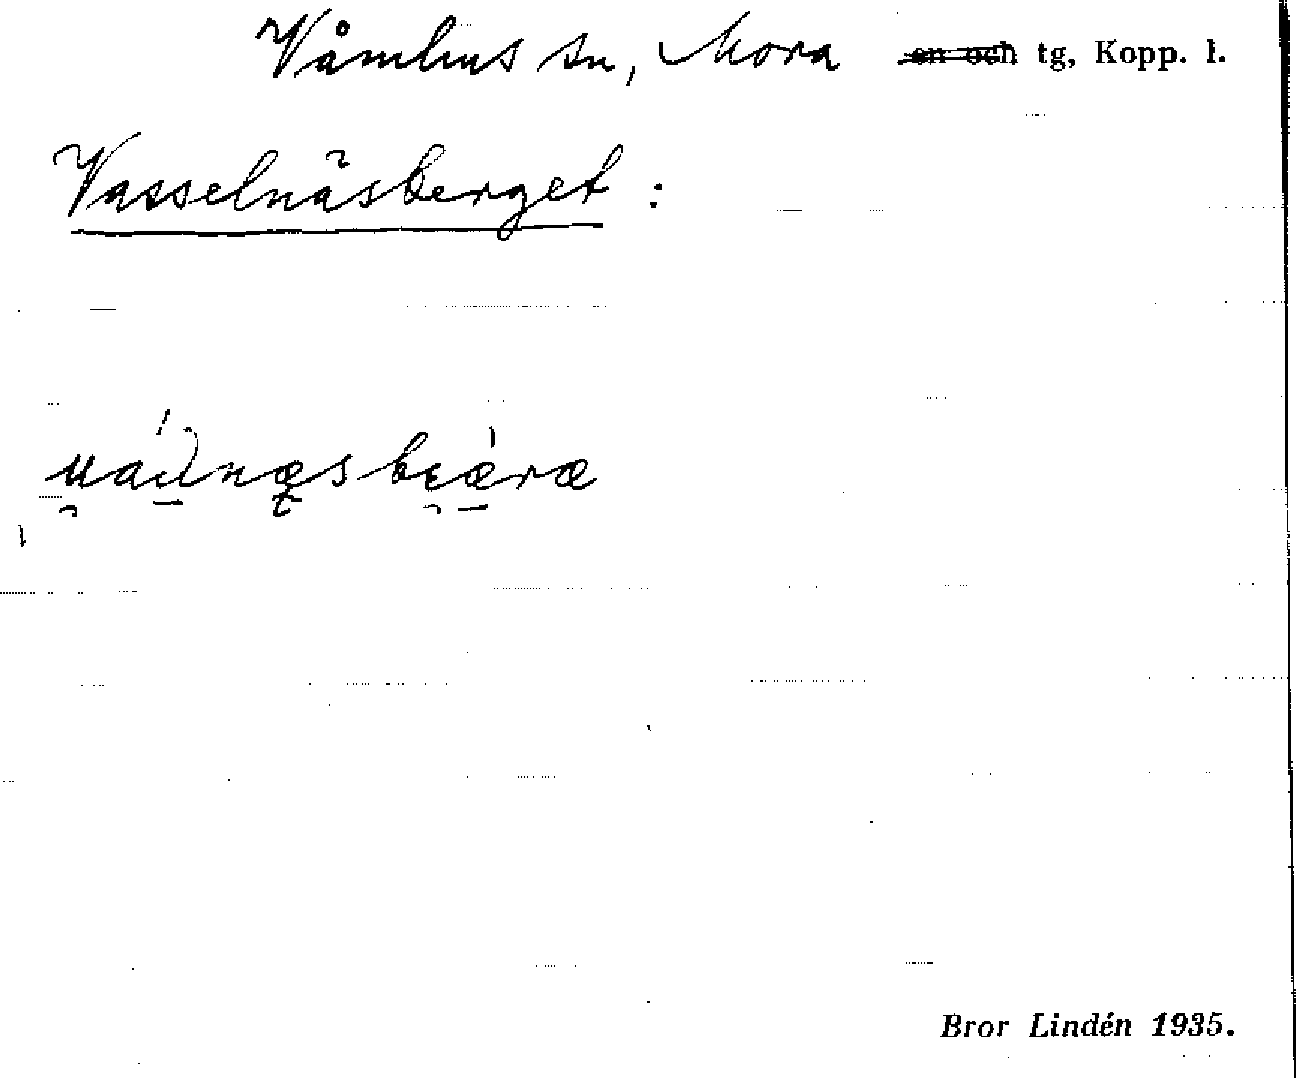 Våmhus sn, Mora ~~sn och~~ tg, Kopp. l.
Vasselnäsberget :
Bror Lindén 1935.